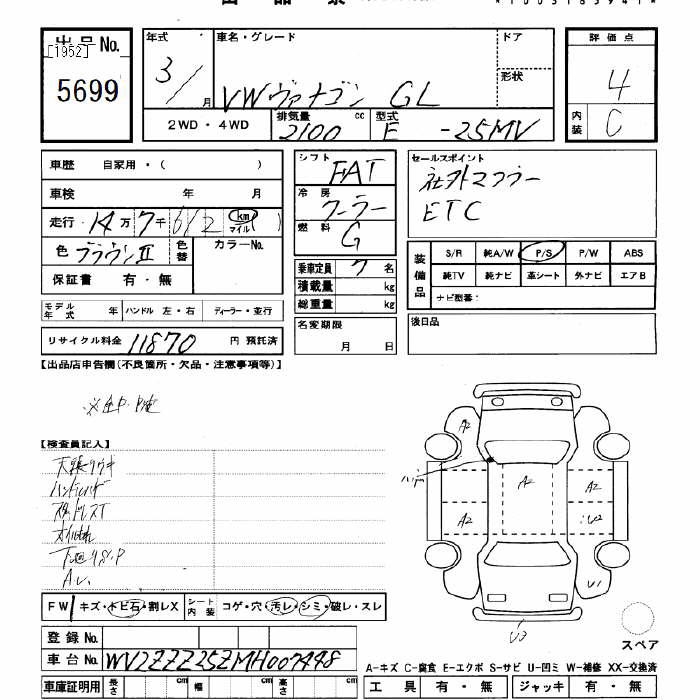 出品票
*1003183941*
出品No. [1952] 5699
年式 3/ 月
車名・グレード VWヴァナゴン GL
ドア
形状
評価点 4
内装 C
2WD・4WD
排気量 2100 cc
型式 E -25MV
車歴 自家用・( )
車検 年 月
走行 14万7千612 km マイル ( )
色 ブラウンII 色替 カラーNo.
保証書 有・無
モデル年式 年 ハンドル 左・右 ディーラー・並行
リサイクル料金 11870 円 預託済
シフト FAT
冷房 クーラー
燃料 G
乗車定員 7 名
積載量 kg
総重量 kg
名変期限 月 日
セールスポイント
社外マフラー
ETC
装備品 S/R 純A/W P/S P/W ABS
純TV 純ナビ 革シート 外ナビ エアB
ナビ型番:
後日品
【出品店申告欄(不良箇所・欠品・注意事項等)】
【検査員記入】
天張りウキ
下廻りサビ・P
Aし、
A2
A2
A2
A2
U2
U1
U3
スペア
FW キズ・トビ石・割レX シート内装 コゲ・穴・汚レ・シミ・破レ・スレ
登録No.
車台No. WV2ZZZ25ZMH007448
車庫証明用 長さ cm 幅 cm 高さ cm
A-キズ C-腐食 E-エクボ S-サビ U-凹ミ W-補修 XX-交換済
工具 有・無 ジャッキ 有・無